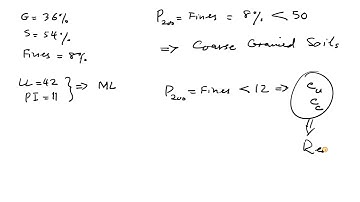 G = 36%
S = 54%
Fines = 8%
LL = 42
PI = 11 } => ML
P200 = Fines = 8% < 50
=> Coarse Grained Soils
P200 = Fines < 12 => Cu
Cc
Re